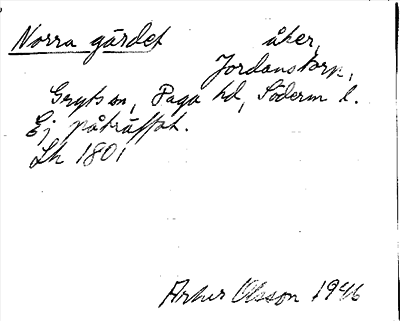 Norra gärdet åker,
Jordanstorp,
Gryts sn, Daga hd, Söderm l.
Ej påträffat.
Lh 1801
Arthur Olsson 1946